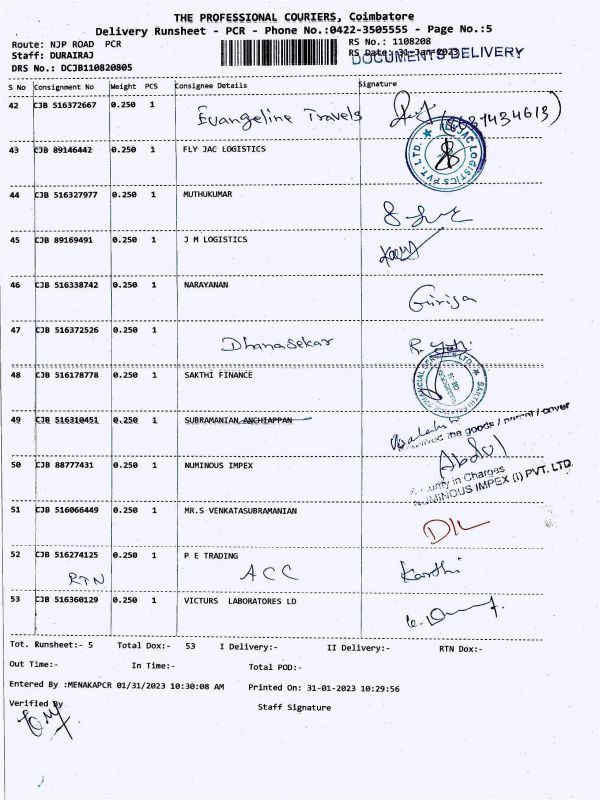 THE PROFESSIONAL COURIERS, Coimbatore
Delivery Runsheet - PCR - Phone No.:0422-3505555 - Page No.:5
Route: NJP ROAD PCR
RS No.: 1108208
Staff: DURAIRAJ
RS Date: 31-Jan-2023
DOCUMENTS DELIVERY
DRS No.: DCJB110820805
S No Consignment No Weight PCS Consignee Details Signature
42 CJB 516372667 0.250 1 Evangeline Travels
43 CJB 89146442 0.250 1 FLY JAC LOGISTICS
LOGISTICS PVT. LTD.
44 CJB 516327977 0.250 1 MUTHUKUMAR
45 CJB 89169491 0.250 1 J M LOGISTICS
46 CJB 516338742 0.250 1 NARAYANAN Girija
47 CJB 516372526 0.250 1 Dhanasekar
48 CJB 516178778 0.250 1 SAKTHI FINANCE
49 CJB 516310451 0.250 1 SUBRAMANIAN ANCHIAPPAN
the goods / parcel / cover
50 CJB 88777431 0.250 1 NUMINOUS IMPEX Abdul
in Charges
NUMINOUS IMPEX (I) PVT. LTD.
51 CJB 516066449 0.250 1 MR.S VENKATASUBRAMANIAN
52 CJB 516274125 0.250 1 P E TRADING
RTN ACC Karthi
53 CJB 516360129 0.250 1 VICTURS LABORATORES LD
Tot. Runsheet:- 5 Total Dox:- 53 I Delivery:- II Delivery:- RTN Dox:-
Out Time:- In Time:- Total POD:-
Entered By :MENAKAPCR 01/31/2023 10:30:08 AM Printed On: 31-01-2023 10:29:56
Verified By
Staff Signature